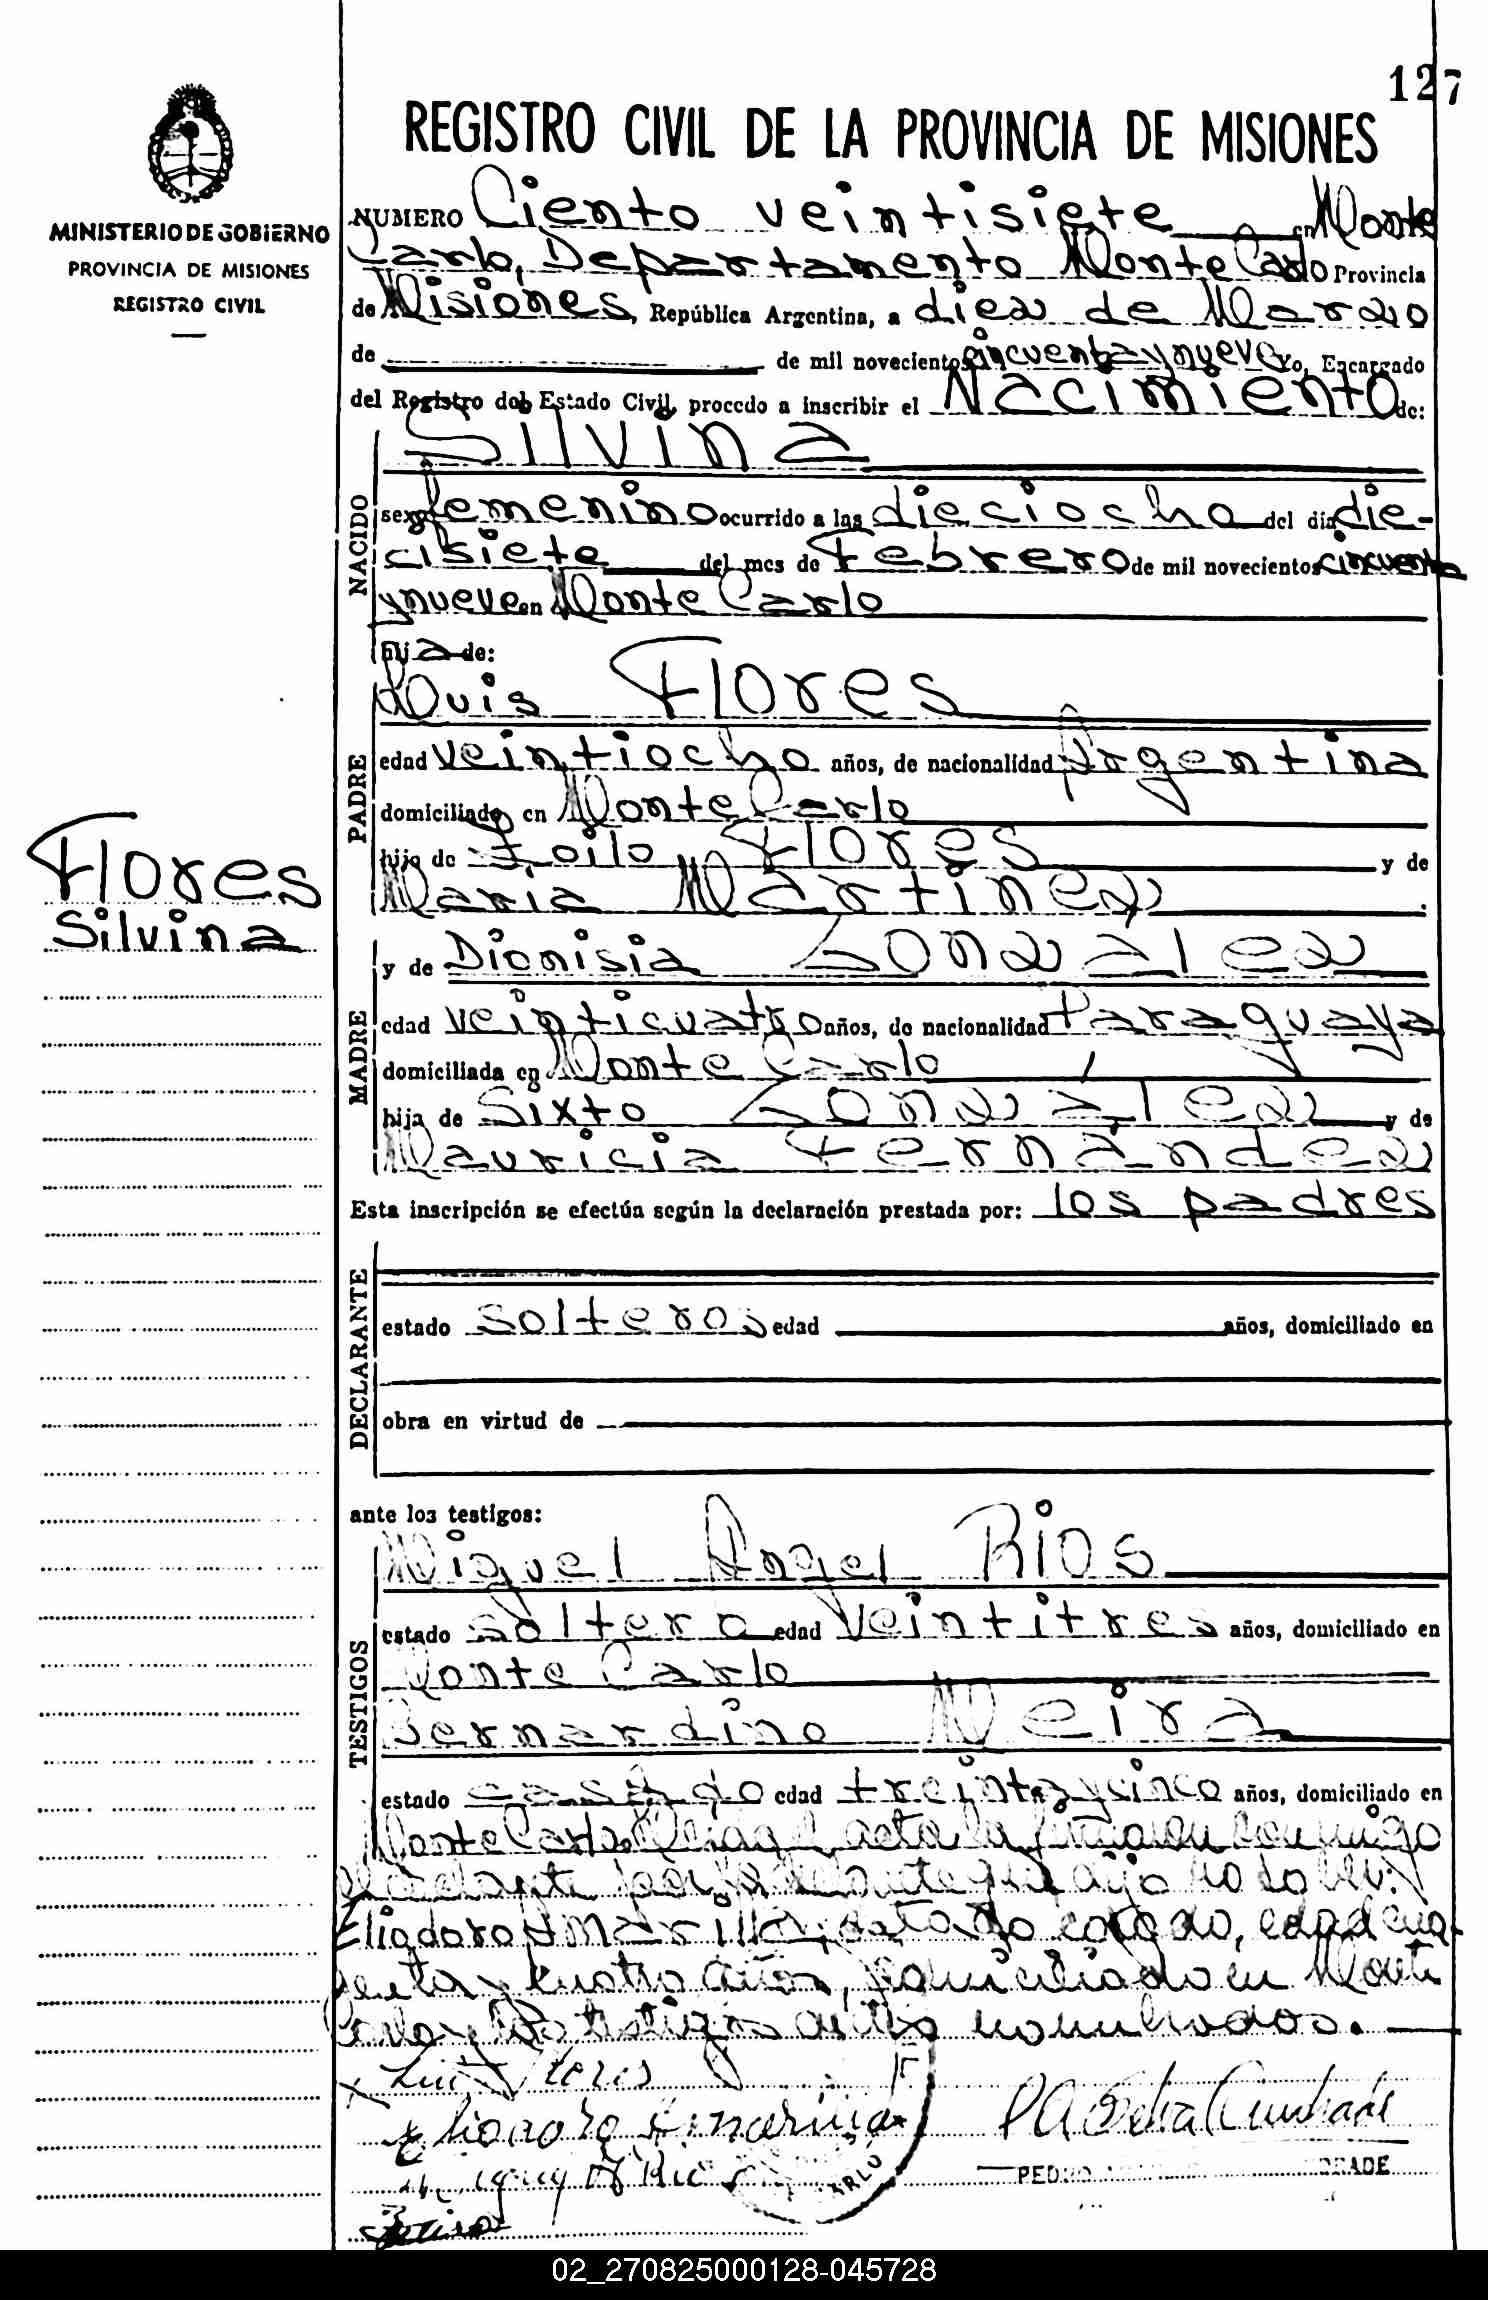 127
REGISTRO CIVIL DE LA PROVINCIA DE MISIONES
MINISTERIO DE GOBIERNO
PROVINCIA DE MISIONES
REGISTRO CIVIL
NUMERO Ciento veintisiete en Monte
Carlo, Departamento Monte Carlo Provincia
de Misiones, República Argentina, a diez de Marzo
de de mil novecientos cincuenta y nueve Yo, Encargado
del Registro del Estado Civil, procedo a inscribir el Nacimiento de:
NACIDO
Silvina
sexo femenino ocurrido a las dieciocho del día die-
cisiete del mes de Febrero de mil novecientos cincuenta
y nueve en Monte Carlo
hija de:
PADRE
Luis Flores
edad veintiocho años, de nacionalidad Argentina
domiciliado en Monte Carlo
hijo de Zoilo Flores y de
Maria Martinez
Flores
Silvina
MADRE
y de Dionisia Gonzalez
edad veinticuatro años, de nacionalidad Paraguaya
domiciliada en Monte Carlo
hija de Sixto González y de
Mauricia Fernández
Esta inscripción se efectúa según la declaración prestada por: los padres
DECLARANTE
estado solteros edad años, domiciliado en
obra en virtud de
ante los testigos:
TESTIGOS
Miguel Angel Rios
estado soltero edad veintitres años, domiciliado en
Monte Carlo
Bernardino Meira
estado casado edad treinta y cinco años, domiciliado en
Monte Carlo. acta la firman conmigo
el padre por que dijo no saber:
Eliodoro estado casado, edad cua-
renta y cuatro años, domiciliado en Monte
Carlo y los testigos antes nombrados.
Luis Flores
Eliodoro
Miguel A Rios
PEDRO
ARLO
02_270825000128-045728